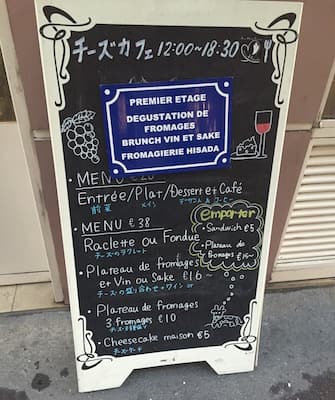 チーズカフェ 12:00~18:30
PREMIER ETAGE
DEGUSTATION DE
FROMAGES
BRUNCH VIN ET SAKE
FROMAGERIE HISADA
・MENU
Entrée/Plat/Dessert et Café
前菜 メイン デザート & コーヒー
・MENU €38
Raclette ou Fondue
チーズのラクレット
・Plateau de fromages
et Vin ou Sake €16~
チーズの盛り合わせ+ワイン or
・Plateau de fromages
3 fromages €10
・Cheesecake maison €5
チーズケーキ
emporter
・Sandwich €5
・Plateau de
fromages €15~